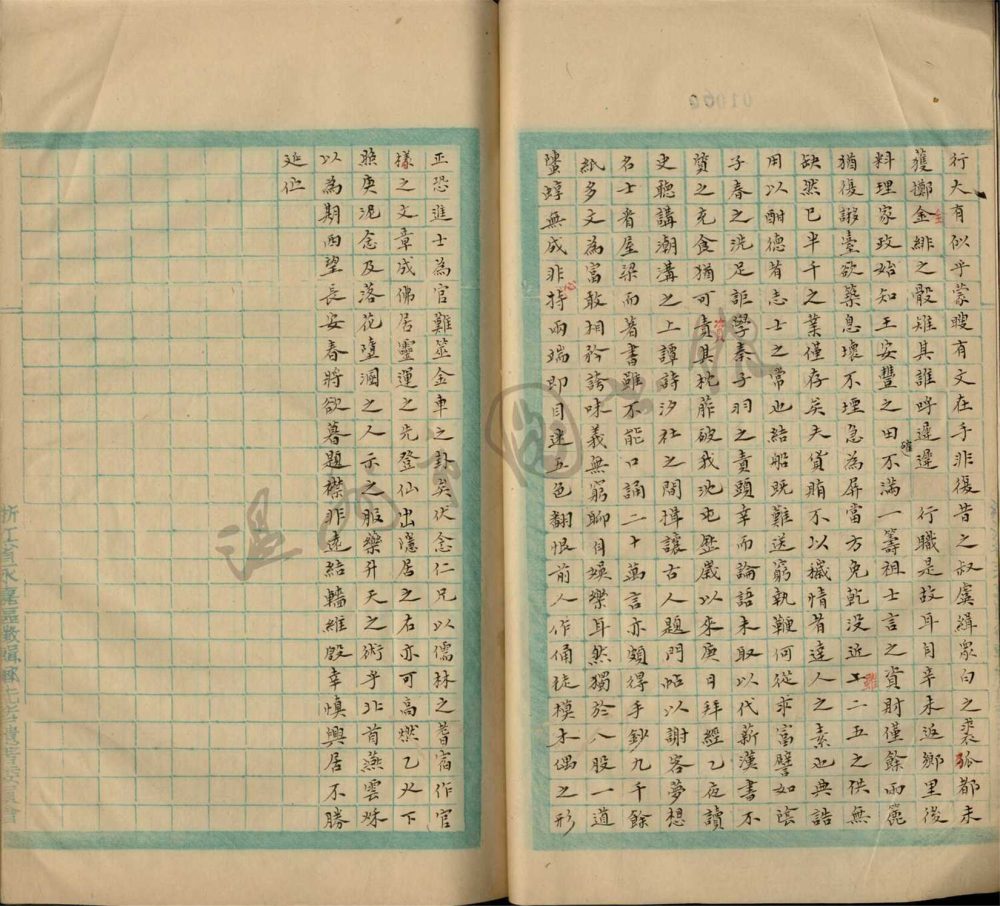 行大有似乎蒙瞍有文在手非復昔之叔虞緝衆白之裘狐都未
獲擲金緋之骰雉其誰呼遑遑行職是故耳自辛未返鄉里後
料理家政始知王安豐之田不滿一籌祖士言之資財僅餘兩簏
猶復謻臺欲築息壞不堙急為屏當方免乾沒近工二五之供無
缺然已半千之業僅存矣夫貨賄不以穢情者達人之素也典誥
用以酣德者志士之常也結船既難送窮執鞭何從求富譬如陰
子春之洗足詎學秦子羽之責頭辛而論語未取以代薪漢書不
質之充食猶可責其枕葄破我池地歷歲以來庚日拜經乙夜讀
史聽講潮溝之上譚詩汐社之間揖讓古人題門帖以謝客夢想
名士者屋梁而著書雖不能口誦二十萬言亦頗得手鈔九千餘
紙多文為富敢相矜誇味義無窮聊自娛樂耳然獨於八股一道
蠟蜳無成非持兩端即目迷五色翻恨前人作俑徒模木偶之形
正恐進士為官難筮金車之卦矣伏念仁兄以儒林之耆宿作官
樣之文章成佛居靈運之先登仙出隱居之右亦可高燃乙火下
照庾泥念及落花墮溷之人示之服藥升天之術乎北首燕雲秌
以為期西望長安春將欲暮題襟非遠結轖維殷幸慎興居不勝
延伫
金
確
雖
資
心
01060
溫州市圖